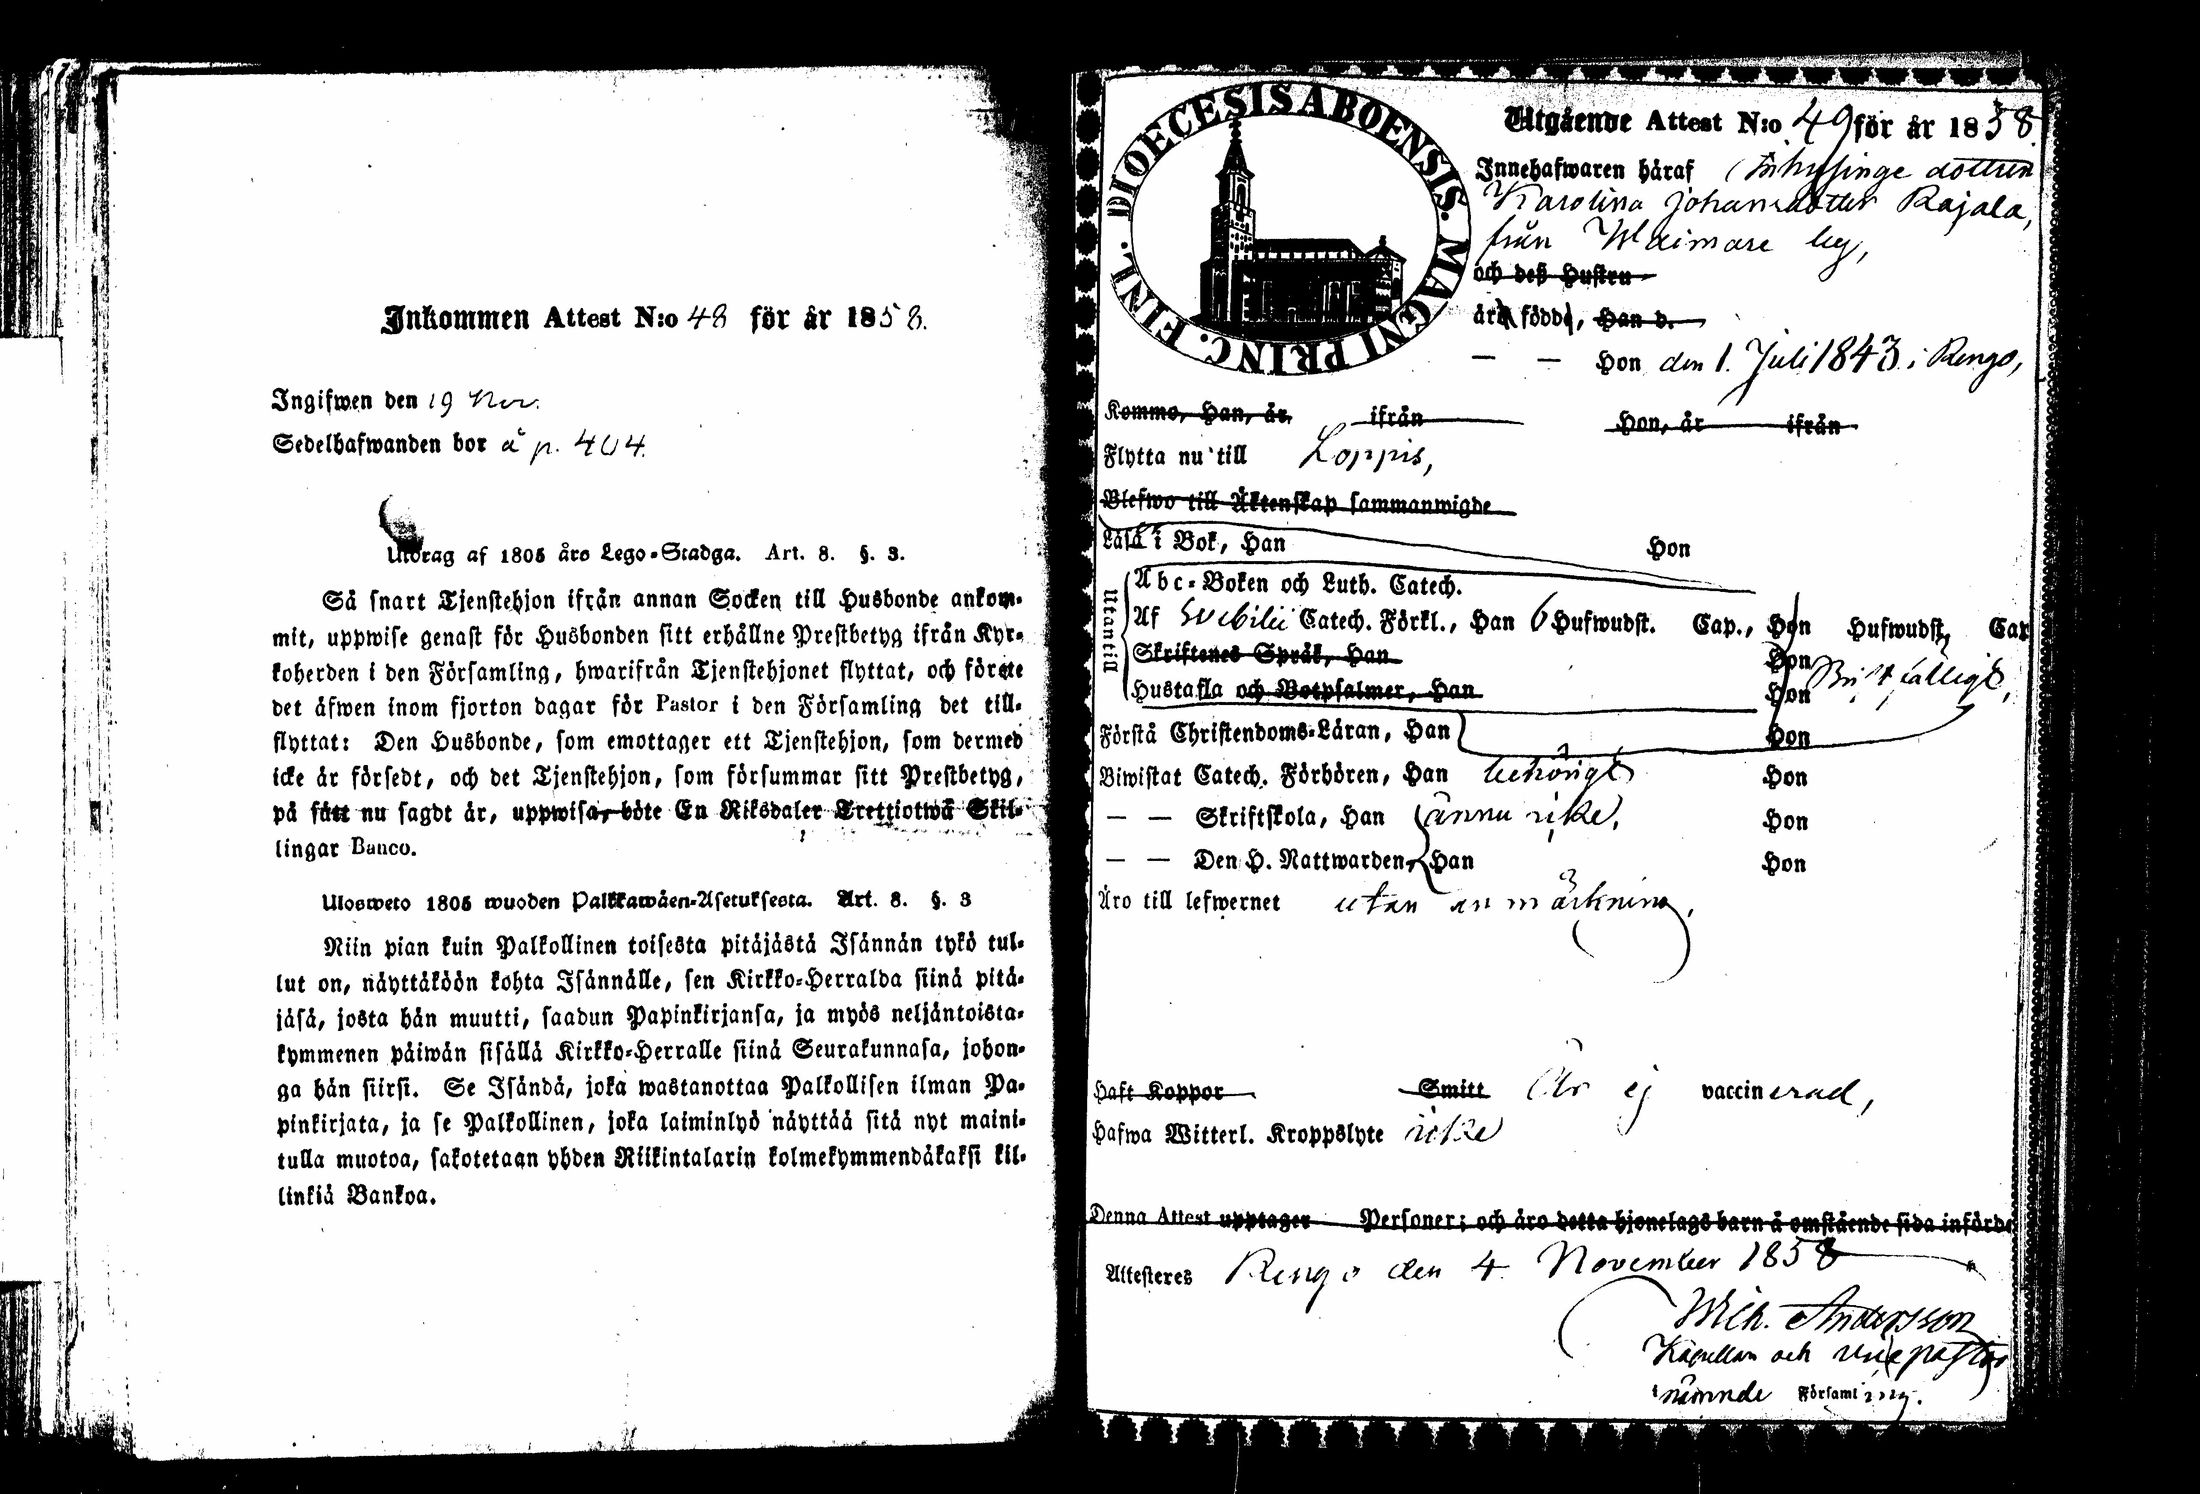 Inkommen Attest N:o 48 för år 1858.
Ingifwen den 19 Nov.
Sedelhafwanden bor å p. 404.
Utdrag af 1805 års Lego-Stadga. Art. 8. §. 3.
Så snart Tjenstehjon ifrån annan Socken till Husbonde ankom-
mit, uppwise genast för Husbonden sitt erhållne Prestbetyg ifrån Kyr-
koherden i den Församling, hwarifrån Tjenstehjonet flyttat, och förete
det äfwen inom fjorton dagar för Pastor i den Församling det till-
flyttat: Den Husbonde, som emottager ett Tjenstehjon, som dermed
icke är försedt, och det Tjenstehjon, som försummar sitt Prestbetyg,
på sätt nu sagdt är, uppwisa, böte En Riksdaler Trettiotwå Skil-
lingar Banco.
Ulosweto 1805 wuoden Palkkawäen-Asetuksesta. Art. 8. §. 3
Niin pian kuin Palkollinen toisesta pitäjästä Isännän tykö tul-
lut on, näyttäköön kohta Isännälle, sen Kirkko-Herralda siinä pitä-
jäsä, josta hän muutti, saadun Papinkirjansa, ja myös neljäntoista-
kymmenen päiwän sisällä Kirkko-Herralle siinä Seurakunnasa, johon-
ga hän siirsi. Se Isändä, joka wastanottaa Palkollisen ilman Pa-
pinkirjata, ja se Palkollinen, joka laiminlyö näyttää sitä nyt maini-
tulla muotoa, sakotetaan yhden Riikintalarin kolmekymmendäkaksi kil-
linkiä Bankoa.
DIOECESIS ABOENSIS. MAGNI PRINC. FINL.
Utgående Attest N:o 49 för år 1858.
Innehafwaren häraf Inhysinge dottren
Karolina Johansdotter Rajala,
från Waimare by,
och deß Hustru
äro födde, Han d.
— — Hon den 1. Juli 1843 i Rengo,
Komma, Han, år ifrån Hon, år ifrån
Flytta nu till Loppis,
Blefwo till Äktenskap sammanwigde
Läsa i Bok, Han Hon
Utantill
Abc-Boken och Luth. Catech.
Af Svebilii Catech. Förkl., Han 6 Hufwudst. Cap., Hon Hufwudst. Cap
Skriftenes Språk, Han Hon
Hustafla och Botpsalmer, Han Hon
Förstå Christendoms-Läran, Han Hon
Biwistat Catech. Förhören, Han behörigt Hon
— — Skriftskola, Han ännu icke, Hon
— — Den H. Nattwarden, Han Hon
Äro till lefwernet utan anmärkning,
Haft Koppor Smitt Är ej vaccinerad,
Hafwa Witterl. Kroppslyte icke
Denna Attest upptager Personer; och äro detta hjonelags barn å omstående sida införde
Attesteres Rengo den 4 November 1858
Mich. Andersson
Kapellan och vice pastor
i nämnde Församling.